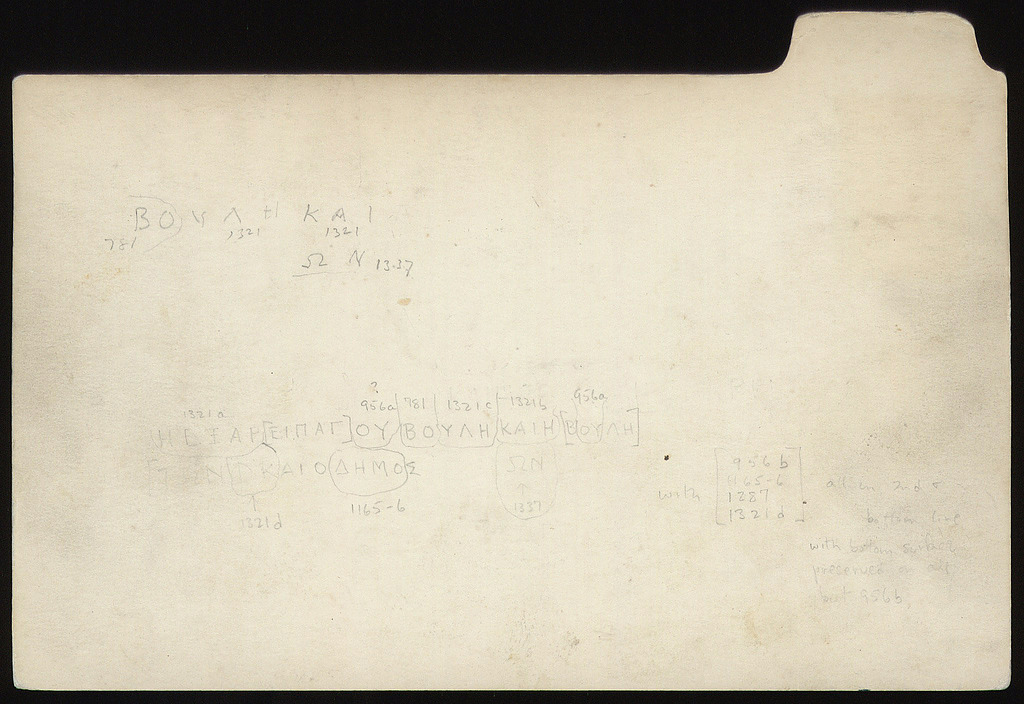 ΒΟΥΛΗ ΚΑΙ
781 1321 1321
ΩΝ 1337
?
1321a 956a 781 1321c 1321b 956a
Η ΕΞ ΑΡ[ΕΙΠΑΓ]ΟΥ ΒΟΥΛΗ ΚΑΙ Η [ΒΟΥΛΗ]
ΚΑΙ Ο ΔΗΜΟΣ ΩΝ
1321d 1165-6 1337
with [956b
1165-6
1287
1321d]
all in 2nd &
bottom line
with bottom surface
preserved on all
but 956b,